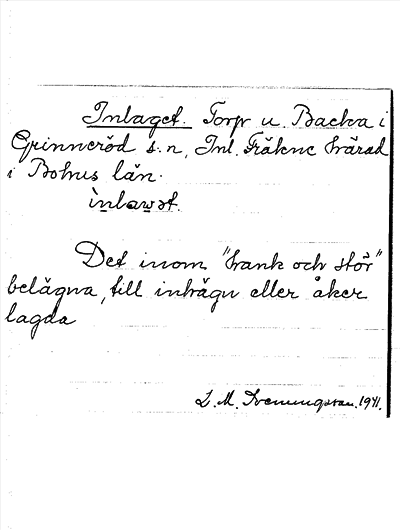 Inlaget. Torp u. Backa i
Grinneröd s:n, Inl. Fräkne härad
i Bohus län.
inlawət.
Det inom "hank och stör"
belägna, till inhägn eller åker
lagda
L. M. Svenungsson. 1941.